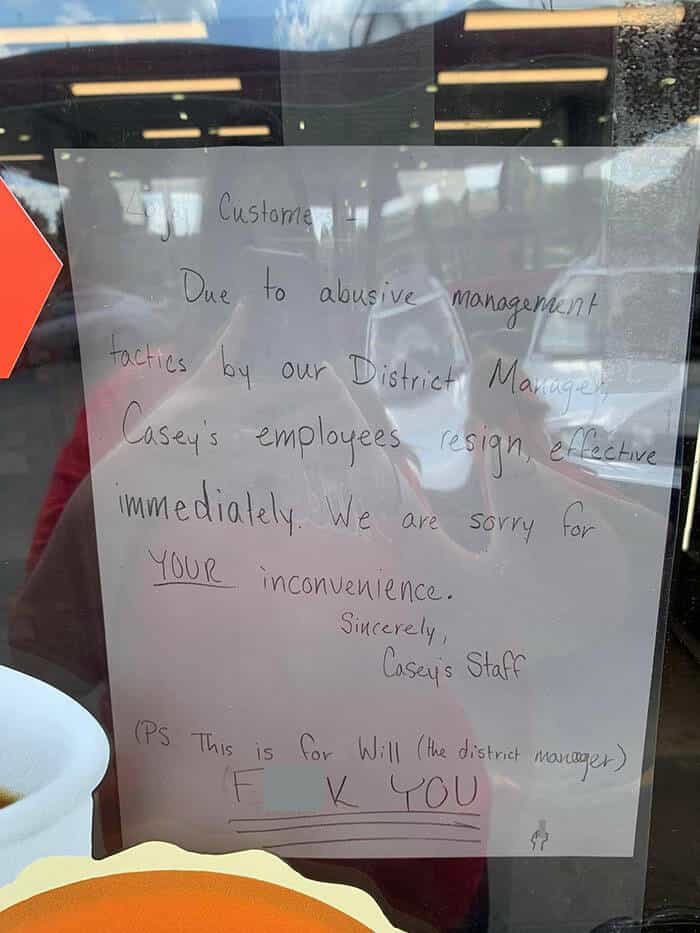 Loyal Customers -
Due to abusive management
tactics by our District Manager,
Casey's employees resign, effective
immediately. We are sorry for
YOUR inconvenience.
Sincerely,
Casey's Staff
(PS. This is for Will (the district manager)
F K YOU